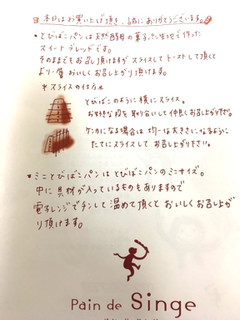 本日はお買い上げ頂き、誠にありがとうございます。
・とびばこパンは天然酵母の菓子パン生地で作った
スイートブレッドです。
そのままでもお召し頂けますがスライスしてトーストして頂くと
より一層おいしくお召し上がり頂けます。
＊スライスの仕方＊
とびばこのように横にスライス。
お好きな段を取り合いして仲良くお召し上がり下さい。
ケンカになる場合は均一な大きさになるように
たてにスライスしてお召し上がり下さい。
・ミニとびばこパンはとびばこパンのミニサイズ。
中に具材が入っているものもありますので
電子レンジでチンして温めて頂くとおいしくお召し上が
り頂けます。
Pain de Singe